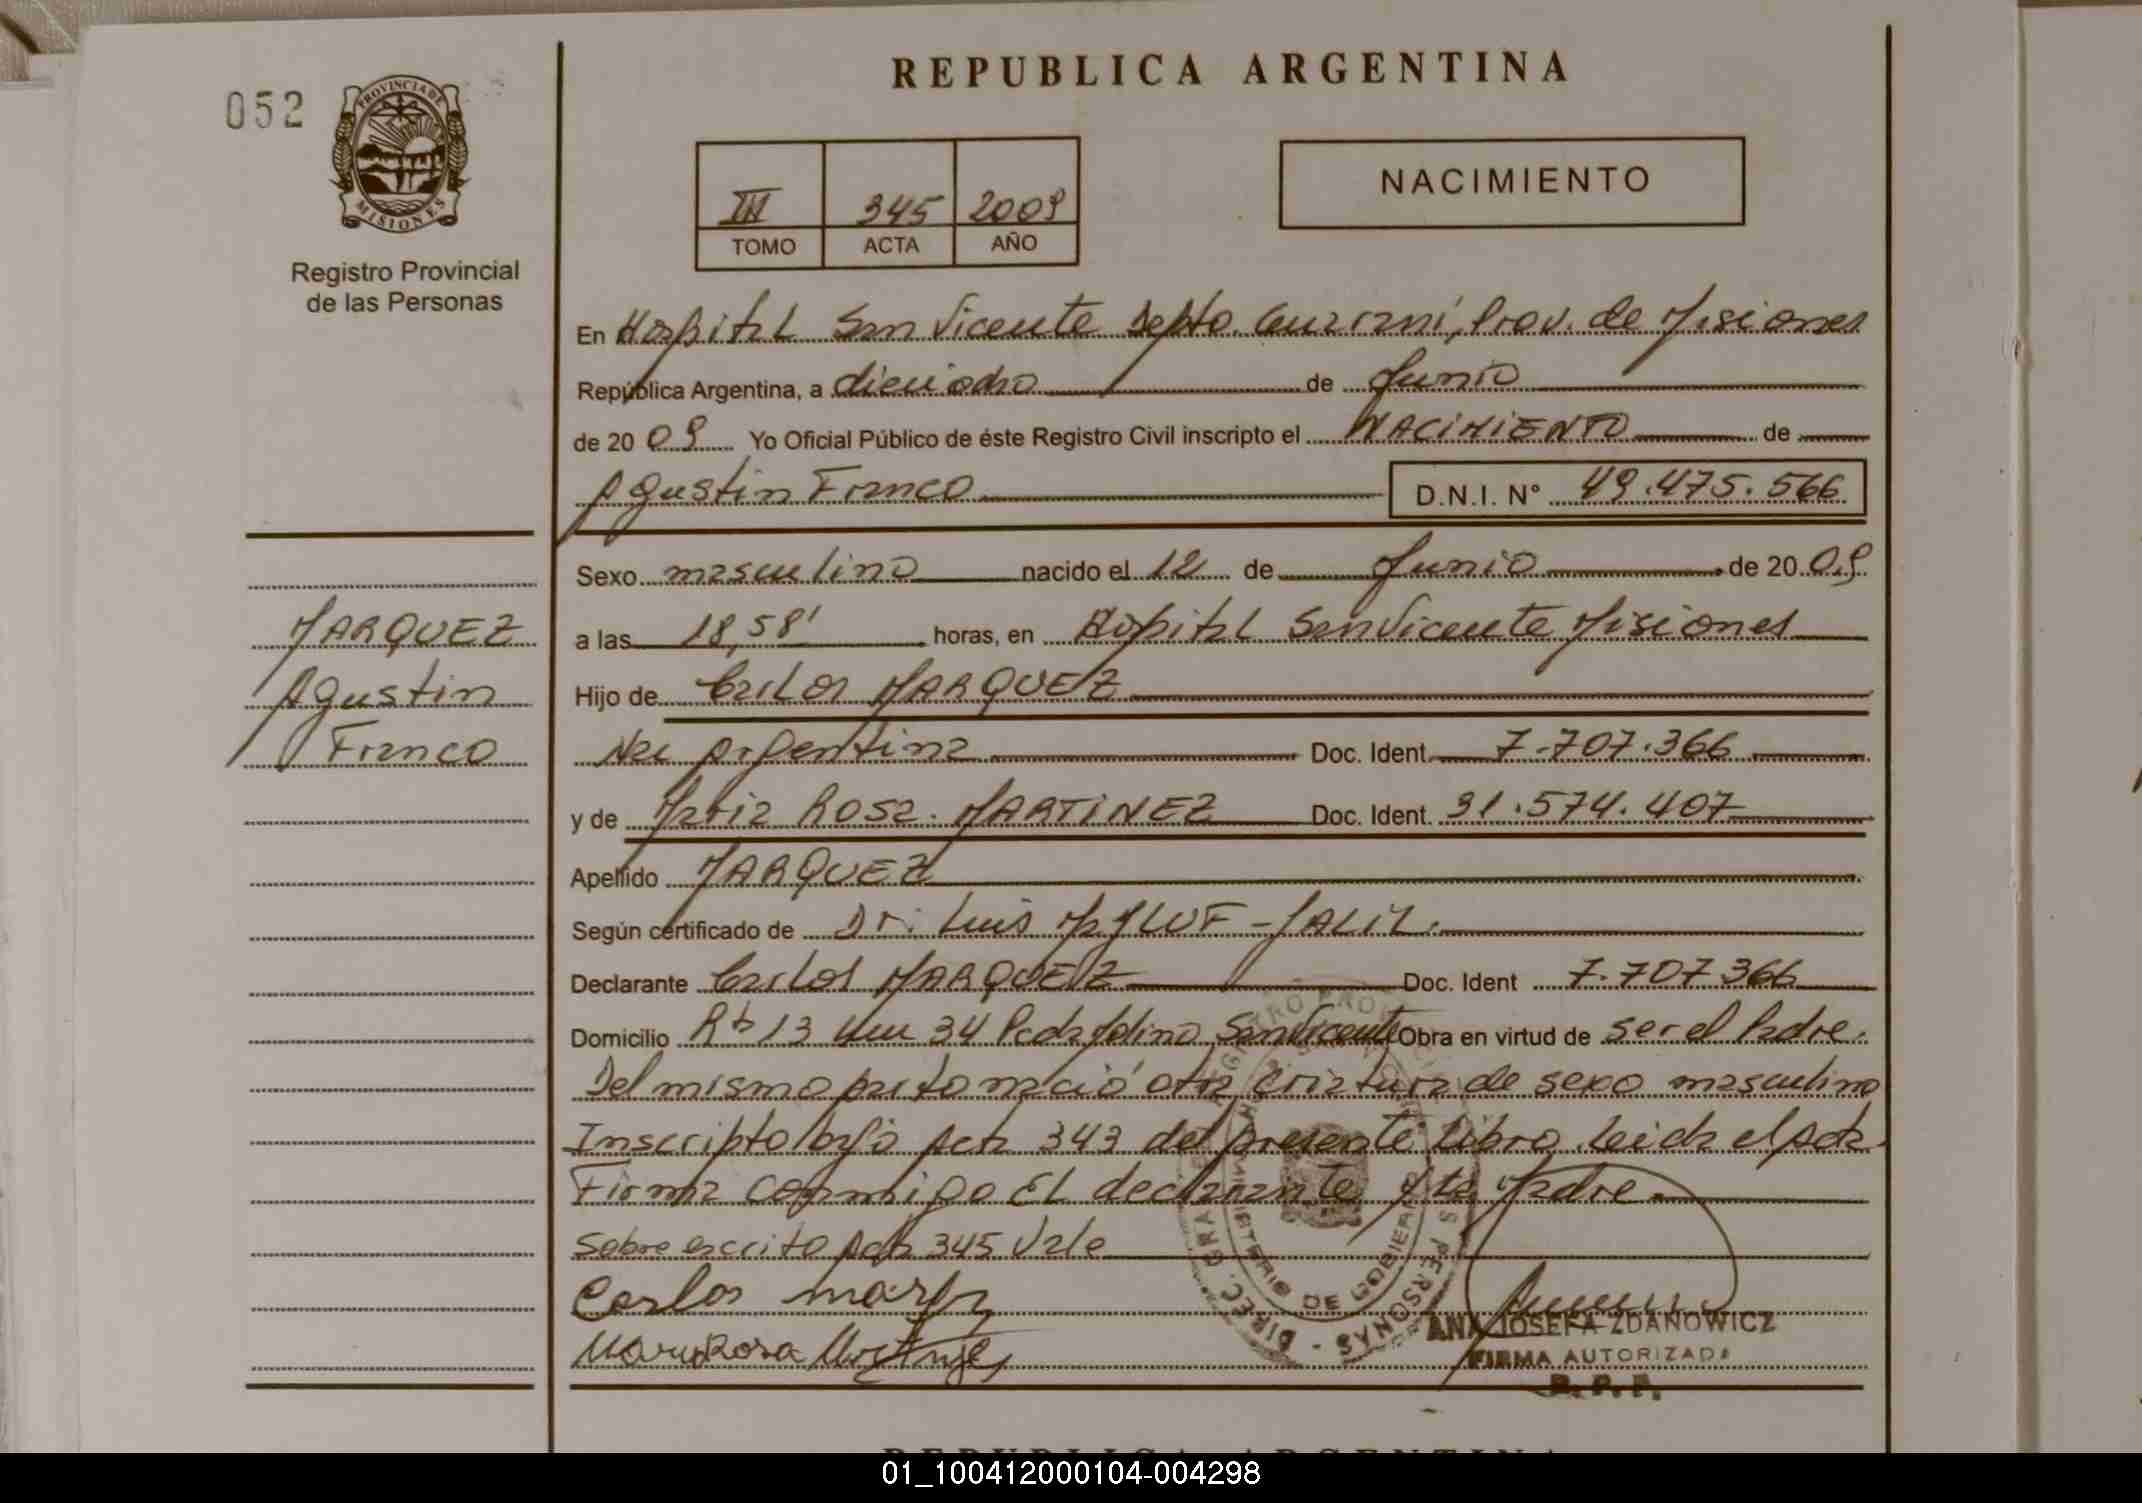 REPUBLICA ARGENTINA
052
PROVINCIA DE
MISIONES
Registro Provincial
de las Personas
NACIMIENTO
III 345 2009
TOMO ACTA AÑO
En Hospital San Vicente Depto. Guaraní, Prov. de Misiones
República Argentina, a dieciocho de Junio
de 2009 Yo Oficial Público de éste Registro Civil inscripto el NACIMIENTO de
Agustin Franco D.N.I. N° 49.475.566
Sexo masculino nacido el 12 de Junio de 2009
a las 18,58' horas, en Hospital San Vicente Misiones
Hijo de Carlos MARQUEZ
Nac Argentina Doc. Ident. 7.707.366
y de Maria Rosa MARTINEZ Doc. Ident. 31.574.407
Apellido MARQUEZ
Según certificado de Dr. Luis JALIL
Declarante Carlos MARQUEZ Doc. Ident 7.707.366
Domicilio Rta 13 km 34 San Vicente Obra en virtud de ser el Padre.
Del mismo parto nació otra criatura de sexo masculino
Inscripto bajo Acta 343 del presente Libro. Leida el Acta
Firma conmigo El declarante y la Madre.
Sobre escrito Acta 345 Vale
Carlos
Maria Rosa
MARQUEZ
Agustin
Franco
DIREC. GRAL. REGISTRO PROV. PERSONAS
MINISTERIO DE GOBIERNO
ANA JOSEFA ZDANOWICZ
FIRMA AUTORIZADA
R. P. P.
REPUBLICA ARGENTINA
01_100412000104-004298